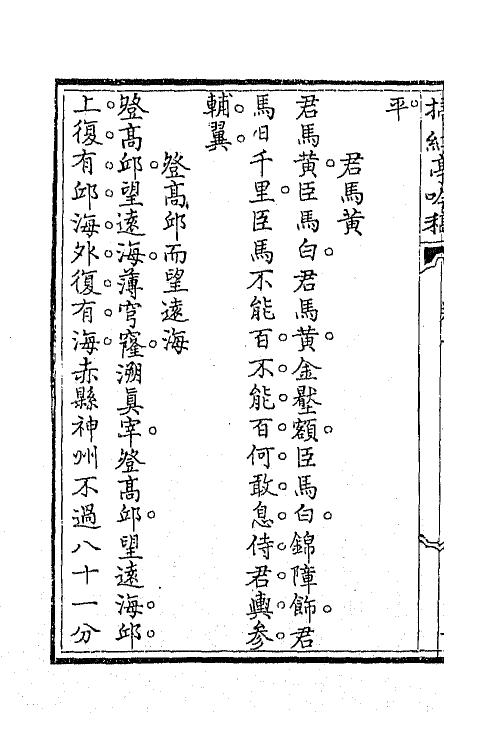 平
君馬黃
君馬黃臣馬白君馬黃金壂額臣馬白錦障飾君
馬日千里臣馬不能百不能百何敢息侍君輿參
輔翼
登高邱而望遠海
登高邱望遠海薄穹窿溯眞宰登高邱望遠海邱
上復有邱海外復有海赤縣神州不過八十一分